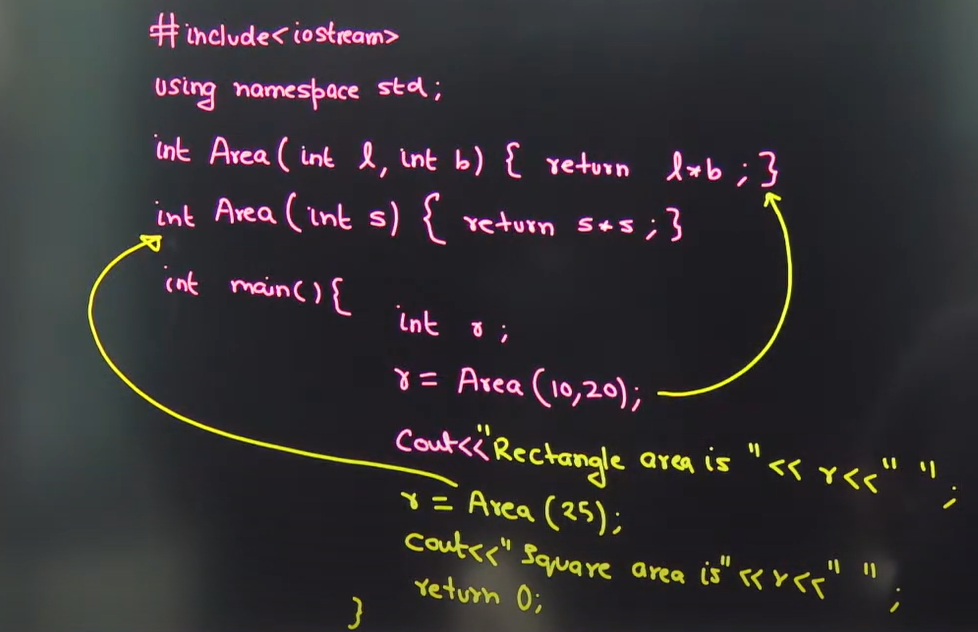 #include<iostream>
using namespace std;
int Area(int l, int b) { return l*b ; }
int Area(int s) { return s*s ; }
int main(){
int r ;
r = Area(10,20);
Cout<<"Rectangle area is "<< r<<" " ;
r = Area(25);
cout<<"Square area is"<<r<<" " ;
return 0;
}